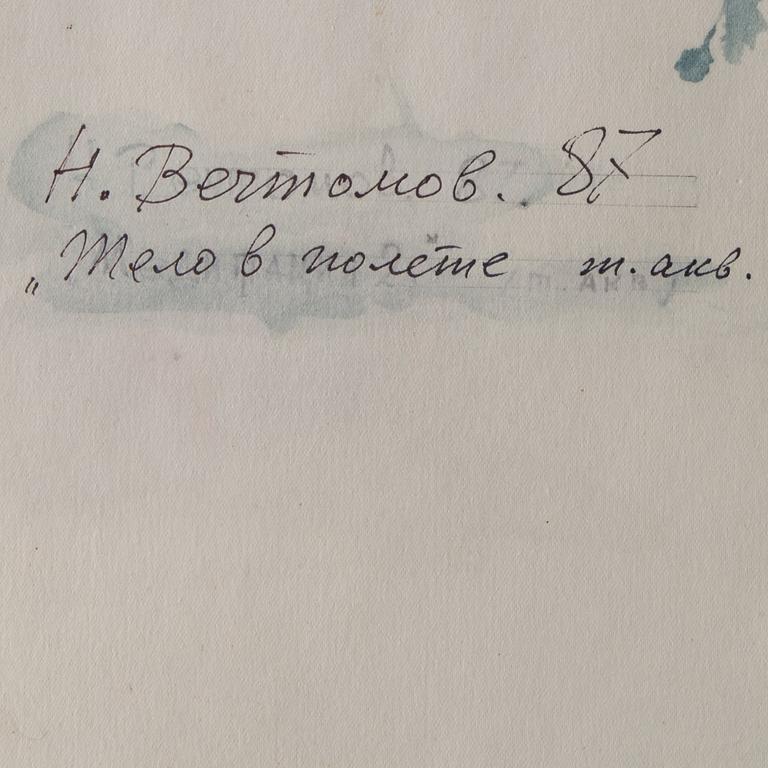 Н. Вечтомов. 87
„Тело в полёте“ т. акв.